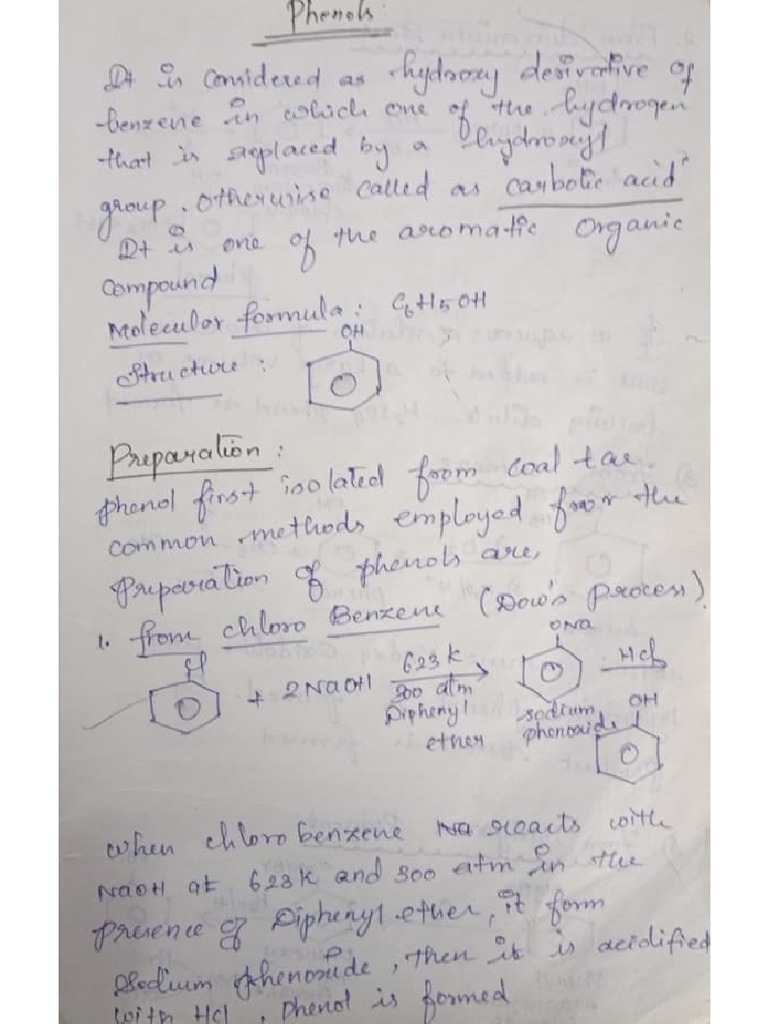 Phenols:
It is considered as hydroxy derivative of
benzene in which one of the hydrogen
that is replaced by a hydroxyl
group. Otherwise called as "carbolic acid"
It is one of the aromatic organic
compound
Molecular formula: C6H5OH
OH
Structure:
Preparation:
phenol first isolated from coal tar.
common methods employed for the
preparation of phenols are,
1. from chloro Benzene (Dow's process)
Cl + 2NaOH 623 K ONa HCl
300 atm
Diphenyl sodium OH
ether phenoxide
When chloro benzene reacts with
NaOH at 623 K and 300 atm in the
presence of Diphenyl ether, it form
sodium phenoxide, then it is acidified
with HCl, phenol is formed